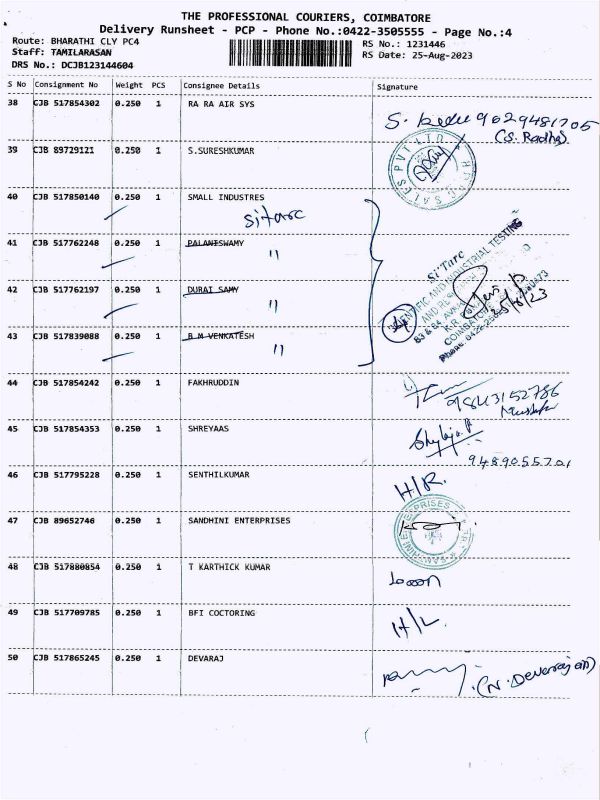 THE PROFESSIONAL COURIERS, COIMBATORE
Delivery Runsheet - PCP - Phone No.:0422-3505555 - Page No.:4
Route: BHARATHI CLY PC4 RS No.: 1231446
Staff: TAMILARASAN RS Date: 25-Aug-2023
DRS No.: DCJB123144604
S No Consignment No Weight PCS Consignee Details Signature
38 CJB 517854302 0.250 1 RA RA AIR SYS
9629481705
(S. Radha)
39 CJB 89729121 0.250 1 S.SURESHKUMAR
SALES PVT LTD
40 CJB 517850140 0.250 1 SMALL INDUSTRES
sitarc
41 CJB 517762248 0.250 1 PALANISWAMY
"
42 CJB 517762197 0.250 1 DURAI SAMY
"
43 CJB 517839088 0.250 1 B M VENKATESH
"
Si'Tarc
SCIENTIFIC AND INDUSTRIAL TESTING
AND
83 & 84
COIMBATORE
Phone: 0422-
4
44 CJB 517854242 0.250 1 FAKHRUDDIN
9843152786
45 CJB 517854353 0.250 1 SHREYAAS
9489055701
46 CJB 517795228 0.250 1 SENTHILKUMAR
H/R.
47 CJB 89652746 0.250 1 SANDHINI ENTERPRISES
48 CJB 517880854 0.250 1 T KARTHICK KUMAR
49 CJB 517709785 0.250 1 BFI COCTORING
H/L.
50 CJB 517865245 0.250 1 DEVARAJ
(N. Devarajan)